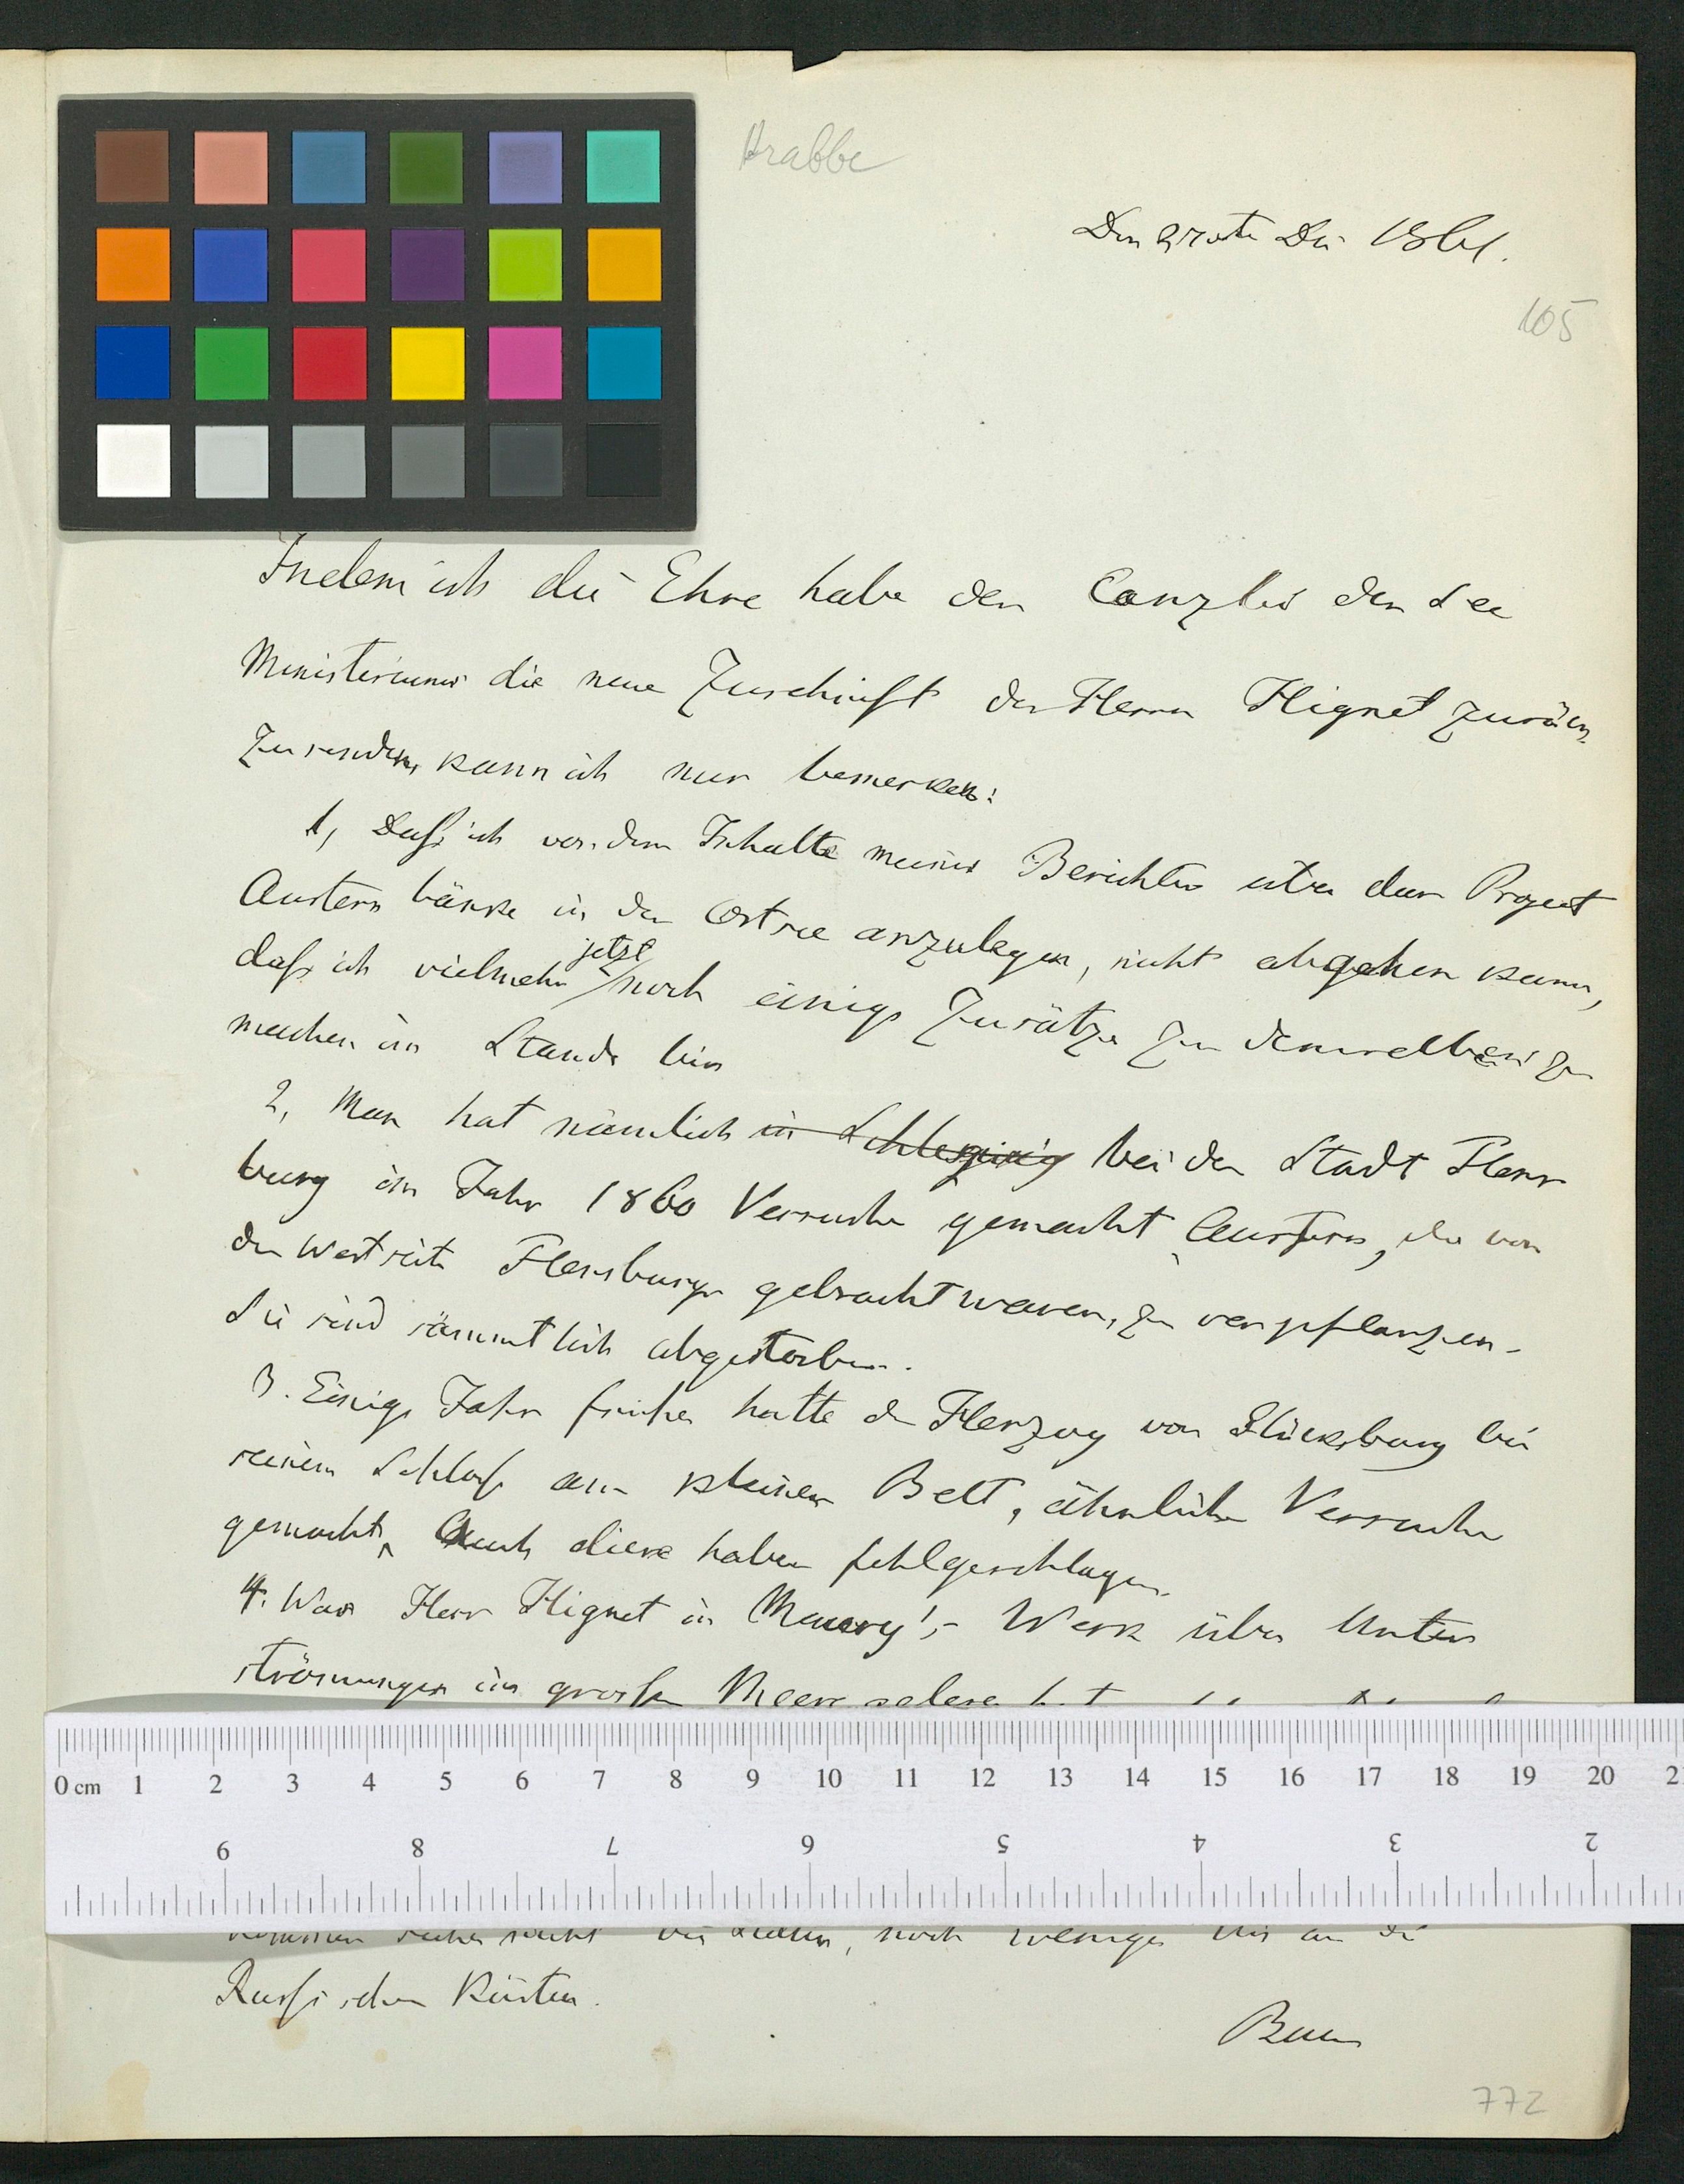 Krabbe
Den 27sten Dec 1861.
105
Indem ich die Ehre habe der Canzlei des See
Ministeriums die neue Zuschrift des Herrn Hignet zurück
zusenden, kann ich nur bemerken:
1, Daß ich von dem Inhalte meines Berichtes über das Project
Austern bänke in der Ostsee anzulegen, nicht abgehen kann,
daß ich vielmehr jetzt noch einige Zusätze zu demselben zu
machen im Stande bin
2, Man hat nämlich in Schleswig bei der Stadt Flens
burg im Jahr 1860 Versuche gemacht Austern, die von
der Westseite Flensburgs gebracht waren, zu verpflanzen.
Sie sind sämmtlich abgestorben.
3. Einige Jahr früher hatte der Herzog von Glücksburg bei
seinem Schloß am kleinen Belt, ähnliche Versuche
gemacht, Auch diese haben fehlgeschlagen.
4. Was Herr Hignet in Maury's Werk über Unter
strömungen im großen Meere gelesen hat
kommen sicher nicht bis noch weniger bis an die
Russischen Küsten.
Baer
772
0 cm 1 2 3 4 5 6 7 8 9 10 11 12 13 14 15 16 17 18 19 20 2
9 8 7 6 5 4 3 2